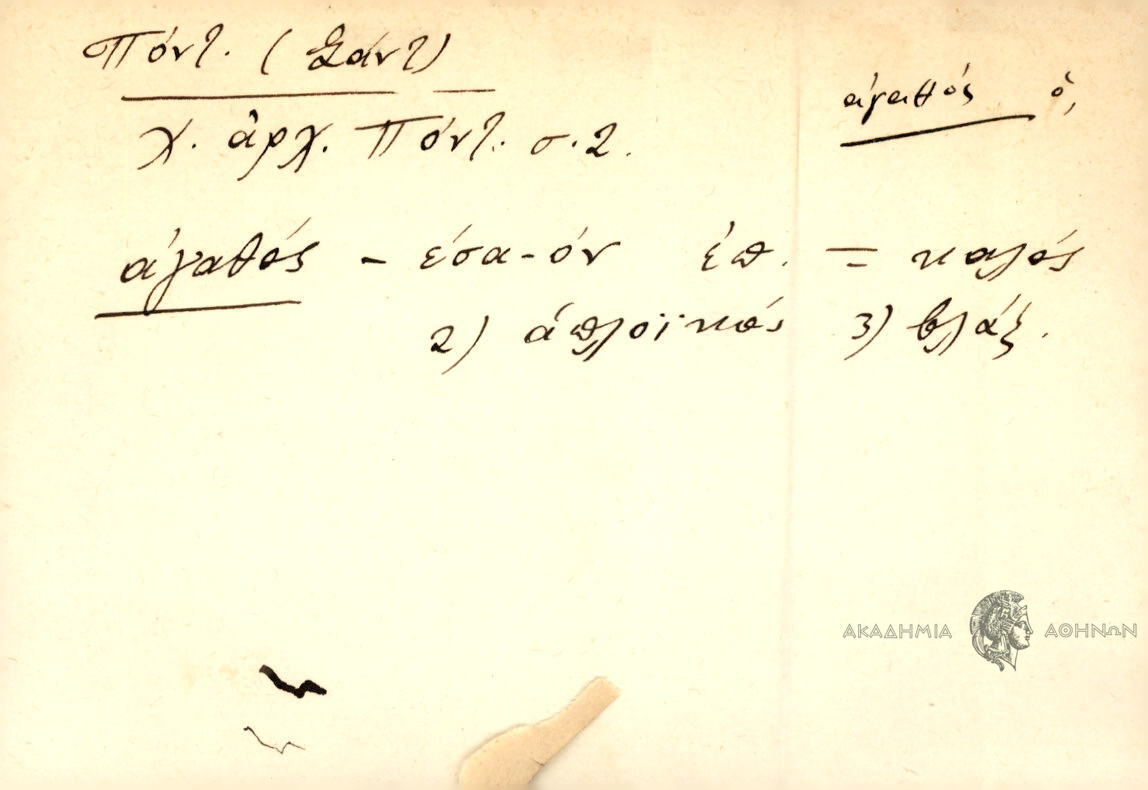 Πόντ. (Σάντ)
ἀγαθός ὁ,
χ. ἀρχ. Πόντ. σ. 2.
ἀγαθός - έσα - όν ἐπ. = καλός
2) ἁπλοϊκός 3) βλάξ.
ΑΚΑΔΗΜΙΑ ΑΘΗΝΩΝ